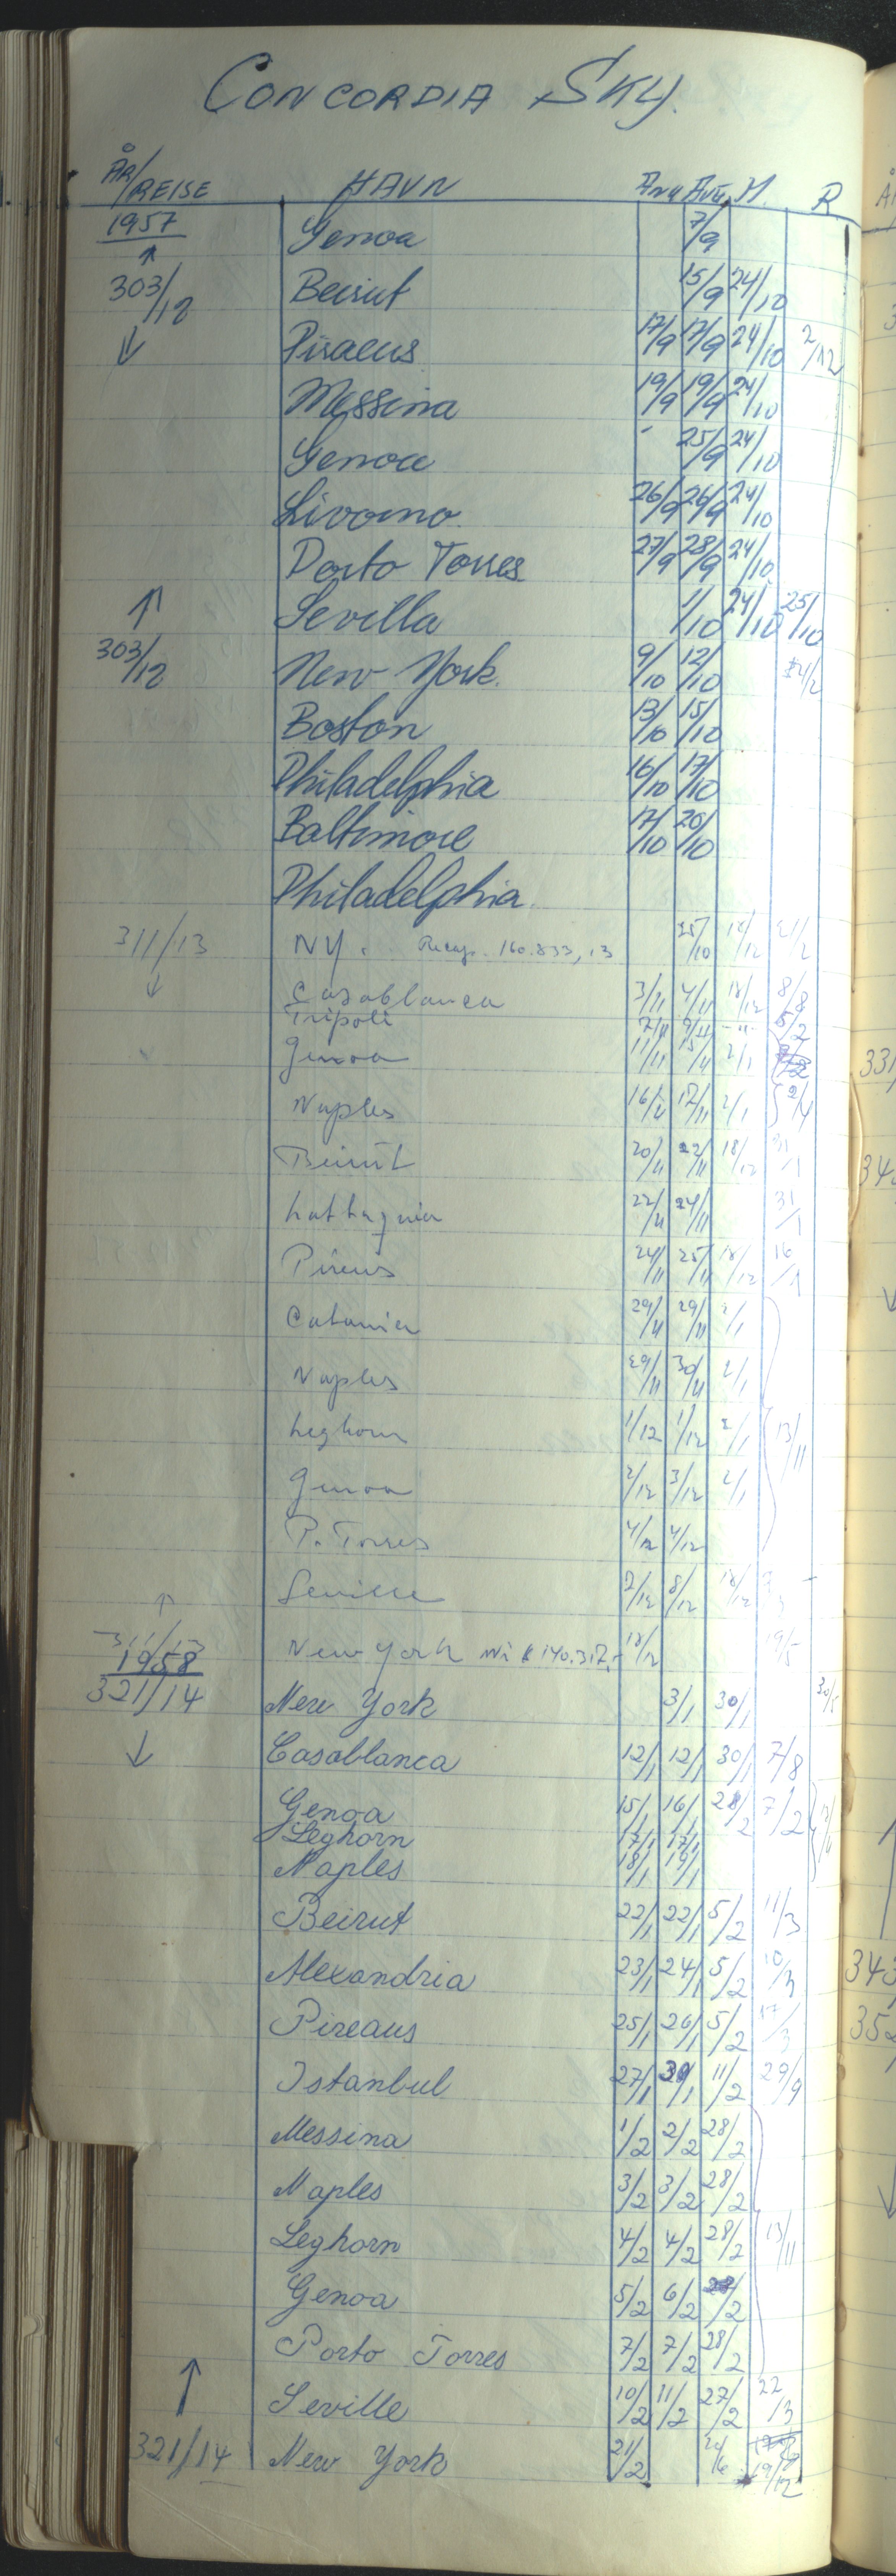 CONCORDIA SKY.
ÅR/REISE HAVN Ank Avg. M. R
1957 Genoa 7/9
303/12 Beirut 15/9 24/10
↓ Piraeus 17/9 17/9 24/10 2/12
Messina 19/9 19/9 24/10
Genoa - 25/9 24/10
Livorno. 26/9 26/9 24/10
Porto Torres 27/9 28/9 24/10
↑ Sevilla 1/10 24/10 25/10
303/12 New York. 9/10 12/10
Boston 13/10 15/10
Philadelphia 16/10 17/10
Baltimore 17/10 20/10
Philadelphia.
311/13 NY. 160.833,13 25/10 18/12
↓ Casablanca 3/11 4/11 18/12 8/8
Tripoli 7/11 9/11 -"- 5/2
Genoa 11/11 15/11 2/1
Naples 16/11 17/11 2/1
Beirut 20/11 22/11 18/12 31/1
Lattaquia 22/11 24/11 31/1
Pireus 24/11 25/11 18/12 16/1
Catania 29/11 29/11 2/1
Naples 29/11 30/11 2/1
Leghorn 1/12 1/12 2/1 13/11
Genoa 2/12 3/12 2/1
P. Torres 4/12 4/12
↑ Seville 7/12 8/12 18/12
311/13 New York 140.317,- 18/12 19/5
1958
321/14 New York 3/1 30/1 30/5
↓ Casablanca 12/1 12/1 30/1 7/8
Genoa 15/1 16/1 28/2 7/2
Leghorn 17/1 17/1
Naples 18/1 19/1
Beirut 22/1 22/1 5/2 11/3
Alexandria 23/1 24/1 5/2 10/3
Pireaus 25/1 26/1 5/2 17/3
Istanbul 27/1 30/1 11/2 29/9
Messina 1/2 2/2 28/2
Naples 3/2 3/2 28/2
Leghorn 4/2 4/2 28/2 13/11
Genoa 5/2 6/2 28/2
Porto Torres 7/2 7/2 28/2
↑ Seville 10/2 11/2 27/2 22/3
321/14 New York 21/2 24/6 19/12